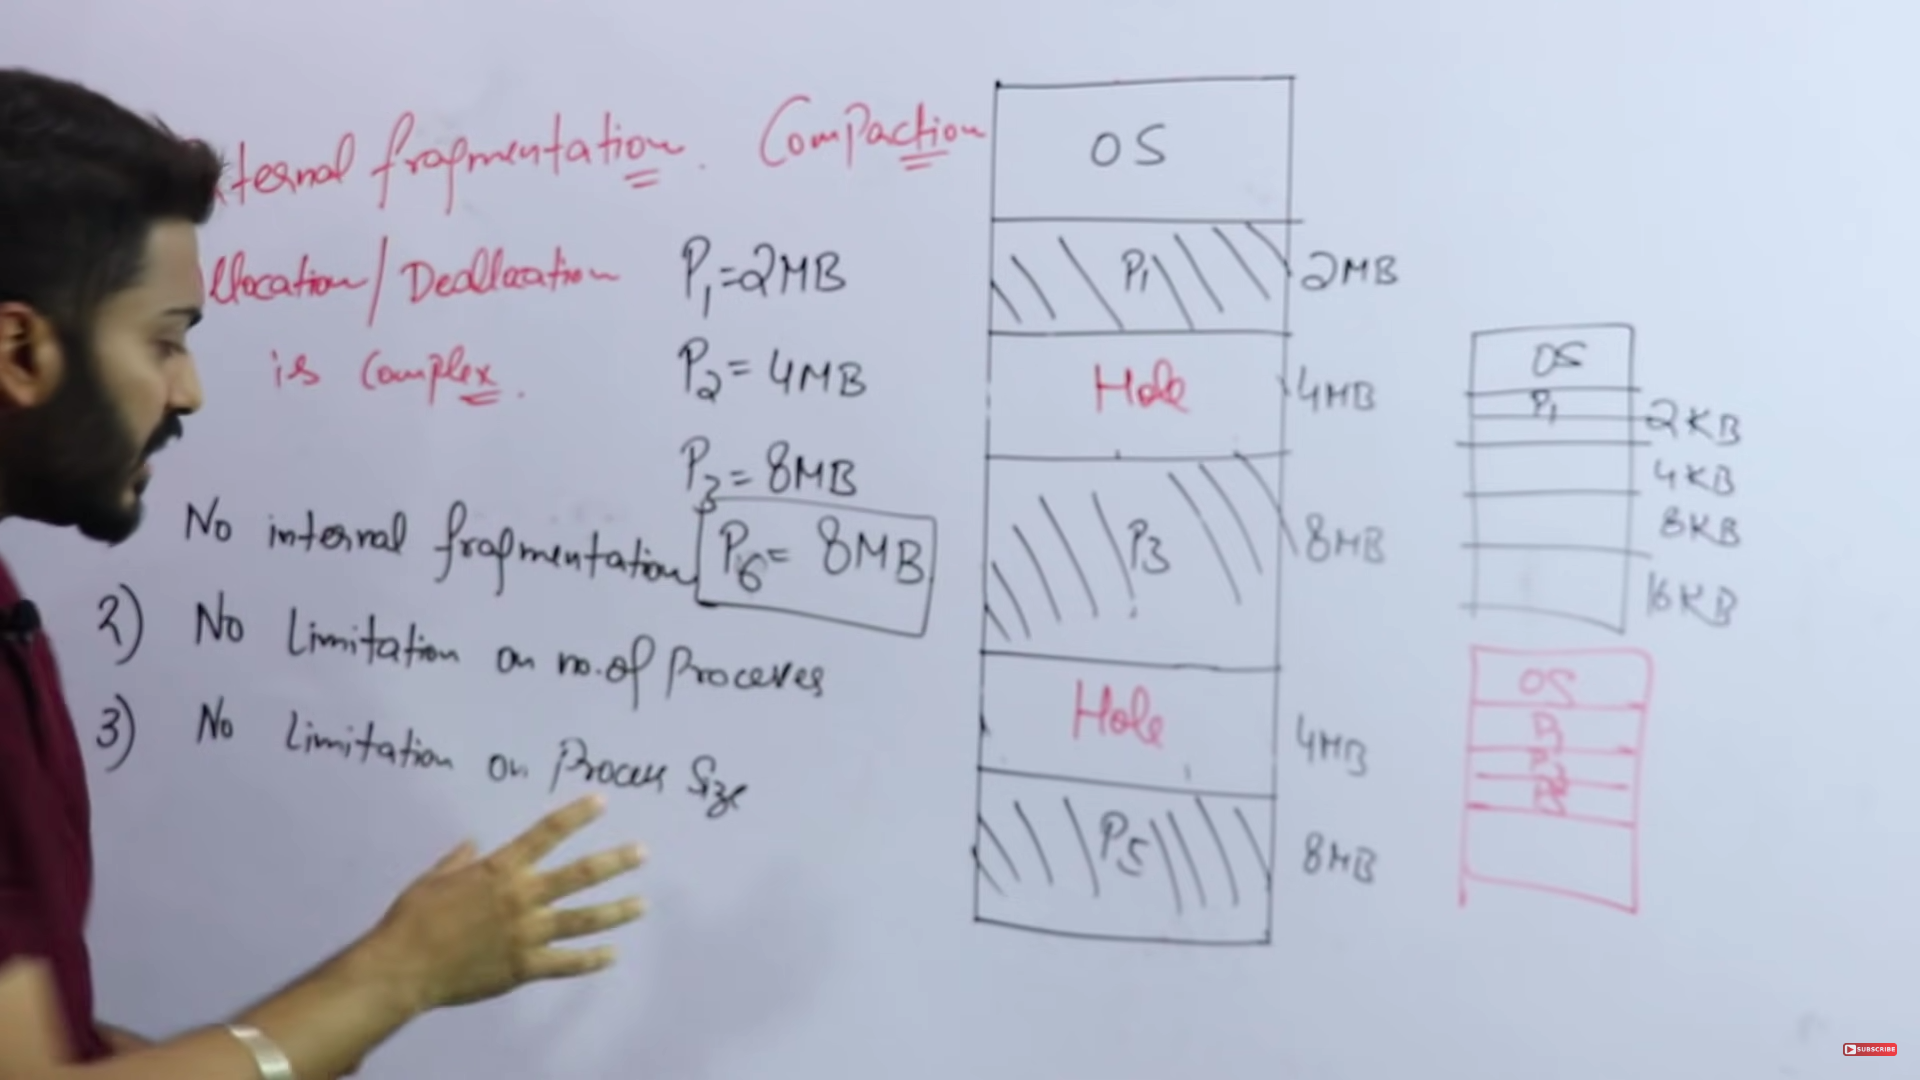 ternal fragmentation. Compaction
llocation/Deallocation
is Complex.
P1=2MB
P2=4MB
P3=8MB
P6=8MB
No internal fragmentation
2) No Limitation on no.of Processes
3) No Limitation on Process Size
OS
P1 2MB
Hole 4MB
P3 8MB
Hole 4MB
P5 8MB
OS
P1 2KB
4KB
8KB
16KB
OS
SUBSCRIBE